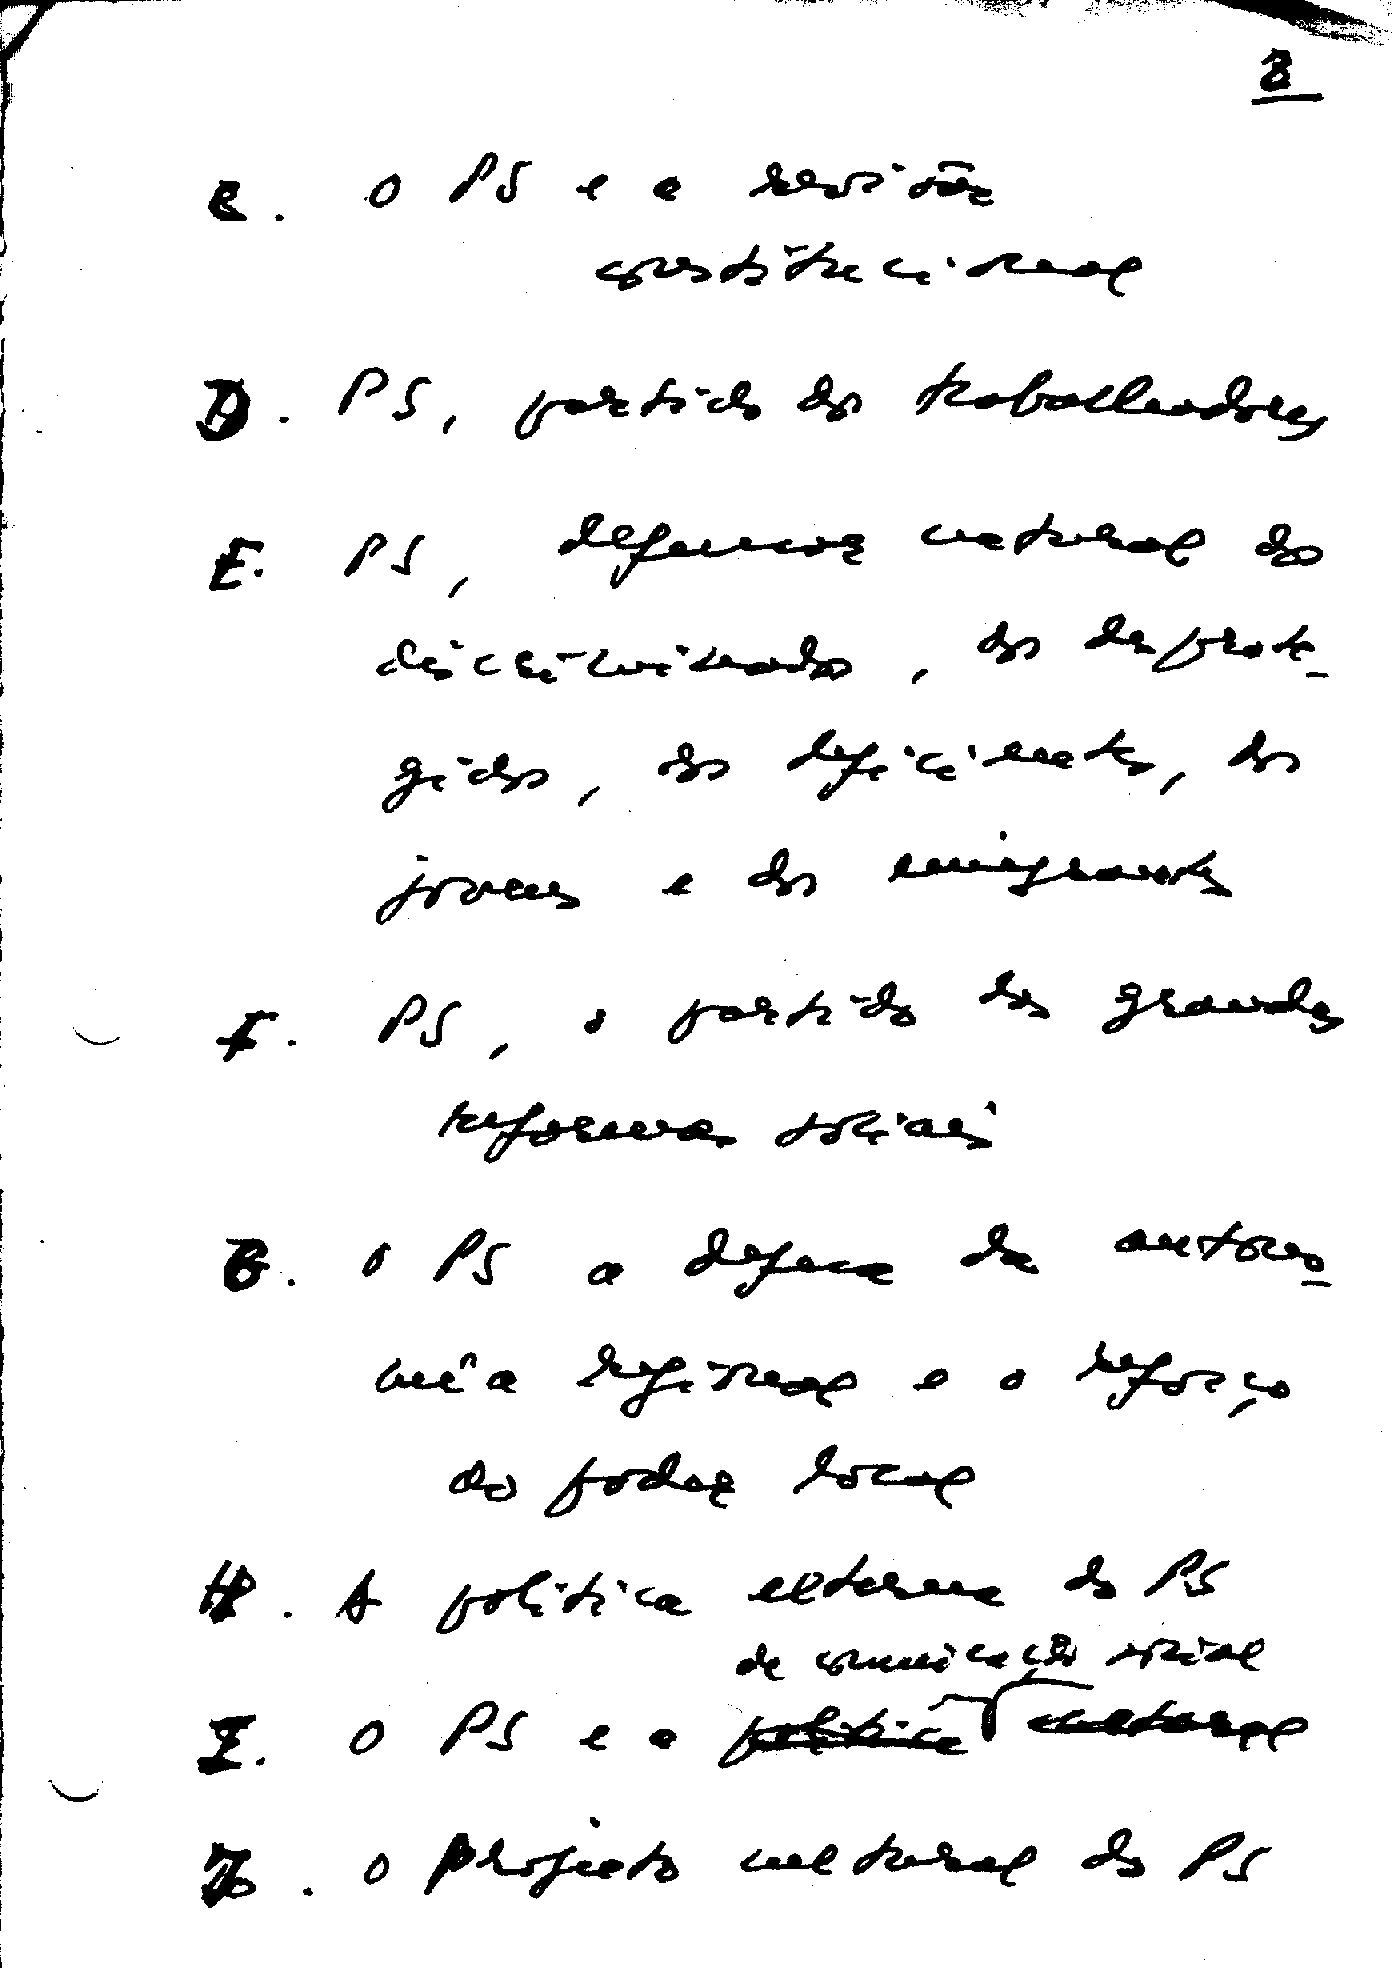 3
C. O PS e a revisão
constitucional
D. PS, partido dos trabalhadores
E. PS, defensor natural dos
discriminados, dos desprote-
gidos, dos deficientes, dos
jovens e dos emigrantes
F. PS, o partido das grandes
reformas sociais
G. O PS a defesa da autono-
mia regional e o reforço
do poder local
H. A política externa do PS
de comunicação social
I. O PS e a política cultural
J. O projecto cultural do PS